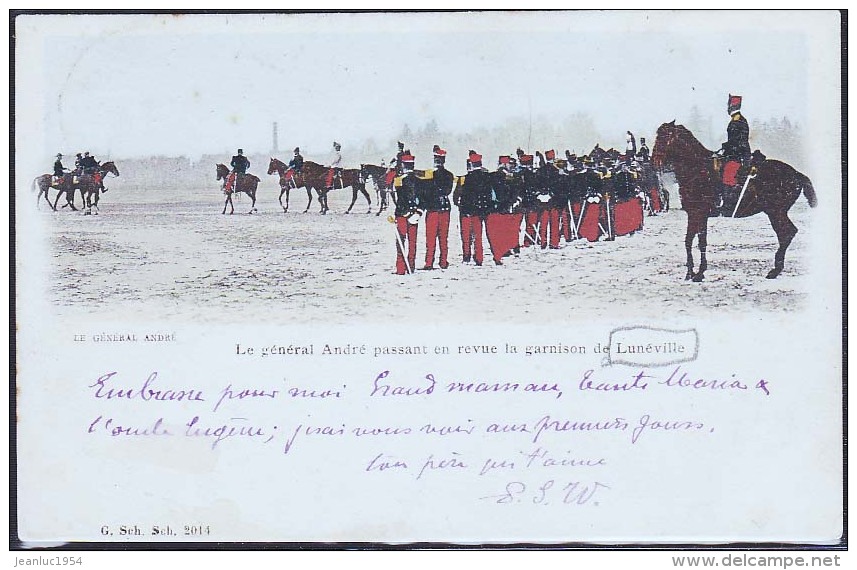 LE GÉNÉRAL ANDRÉ
Le général André passant en revue la garnison de Lunéville
Embrasse pour moi Grand maman, tante Maria &
l'oncle Eugène; j'irai vous voir aux premiers jours.
ton père qui t'aime
G. Sch. Sch. 2014
jeanluc1954
www.delcampe.net